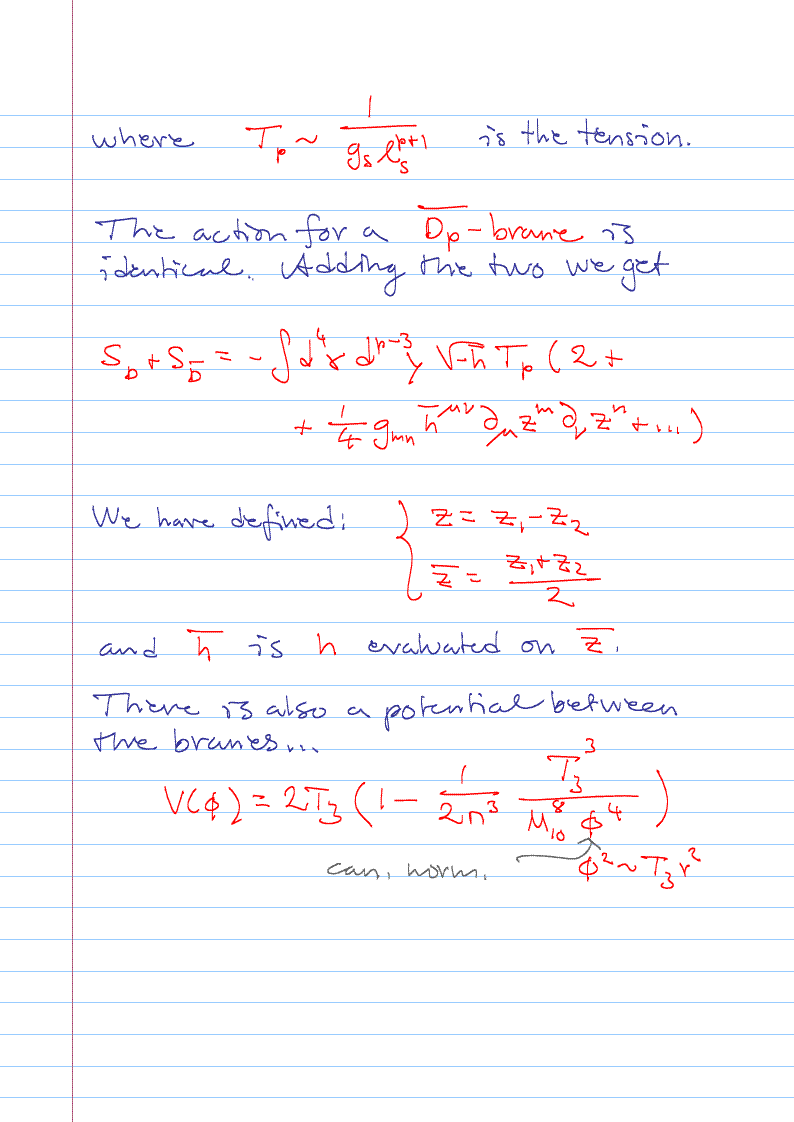 where T_p ~ 1/(g_s ℓ_s^{p+1}) is the tension.
The action for a \overline{D_p}-brane is
identical. Adding the two we get
S_D + S_{\bar{D}} = - ∫ d^4x d^{p-3}y √-h T_p ( 2 +
+ 1/4 g_{mn} \bar{h}^{μν} ∂_μ z^m ∂_ν z^n + ... )
We have defined: { z = z_1 - z_2
\bar{z} = (z_1 + z_2)/2
and \bar{h} is h evaluated on \bar{z}.
There is also a potential between
the branes...
V(φ) = 2T_3 ( 1 - 1/(2π^3) T_3^3/(M_{10}^8 φ^4) )
can. norm. φ^2 ~ T_3 r^2